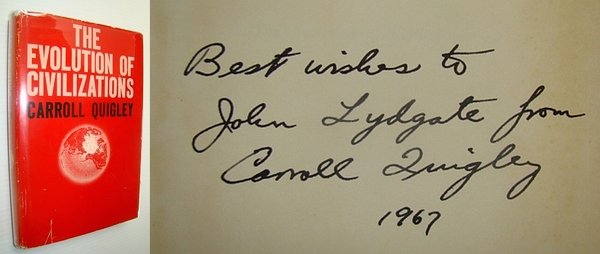 THE
EVOLUTION OF
CIVILIZATIONS
CARROLL QUIGLEY
Best wishes to
John Lydgate from
Carroll Quigley
1967